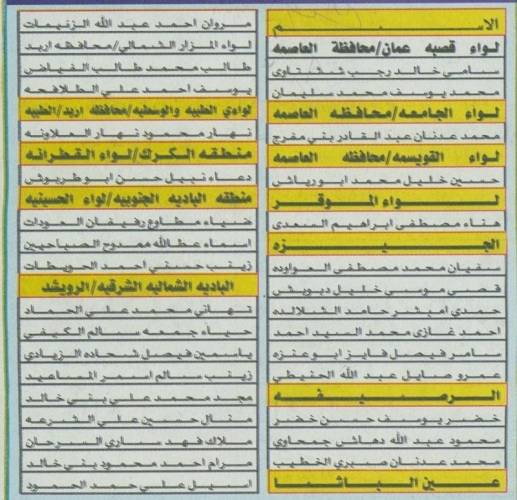 الاسم
لواء قصبه عمان/محافظة العاصمه
سامي خالد رجب ششتاوي
محمد يوسف محمد سليمان
لواء الجامعه/محافظه العاصمه
محمد عدنان عبد القادر بني مفرج
لواء القويسمه/محافظه العاصمه
حسين خليل محمد ابورياش
لواء الموقر
هناء مصطفى ابراهيم السعدي
الجيزه
سفيان محمد مصطفى العواوده
قصي موسى خليل دبوبش
حمدي امبشر حامد الشلالده
احمد غازي محمد السيد احمد
سامر فيصل فايز ابوعنزه
عمرو صايل عبد الله الحنيطي
الرصيفه
خضر يوسف حسن خضر
محمود عبد الله دهامش جمحاوي
محمد عدنان صبري الخطيب
عين الباشا
مروان احمد عبد الله الزنيمات
لواء المزار الشمالي/محافظه اربد
طالب محمد طالب الفياض
يوسف احمد علي الطلافحه
لواءي الطيبه والوسطيه/محافظه اربد/الطيبه
نهار محمود نهار العلاونه
منطقه الكرك/لواء القطرانه
دعاء نبيل حسن ابوطربوش
منطقه الباديه الجنوبيه/لواء الحسينيه
ضياء مطاوع رفيفان العودات
اسماء عطالله ممدوح الصباحيين
زينب حسني احمد الحويطات
الباديه الشماليه الشرقيه/الرويشد
تهاني محمد علي الحماد
حياء جمعه سالم الكيفي
ياسمين فيصل شحاده الزيادي
زينب سالم اسمر الماعيد
مجد محمد علي بني خالد
منال حسين علي الشرعه
ملاك فهد ساري السرحان
مرام احمد محمود بني خالد
اسيل علي حمد الحمود